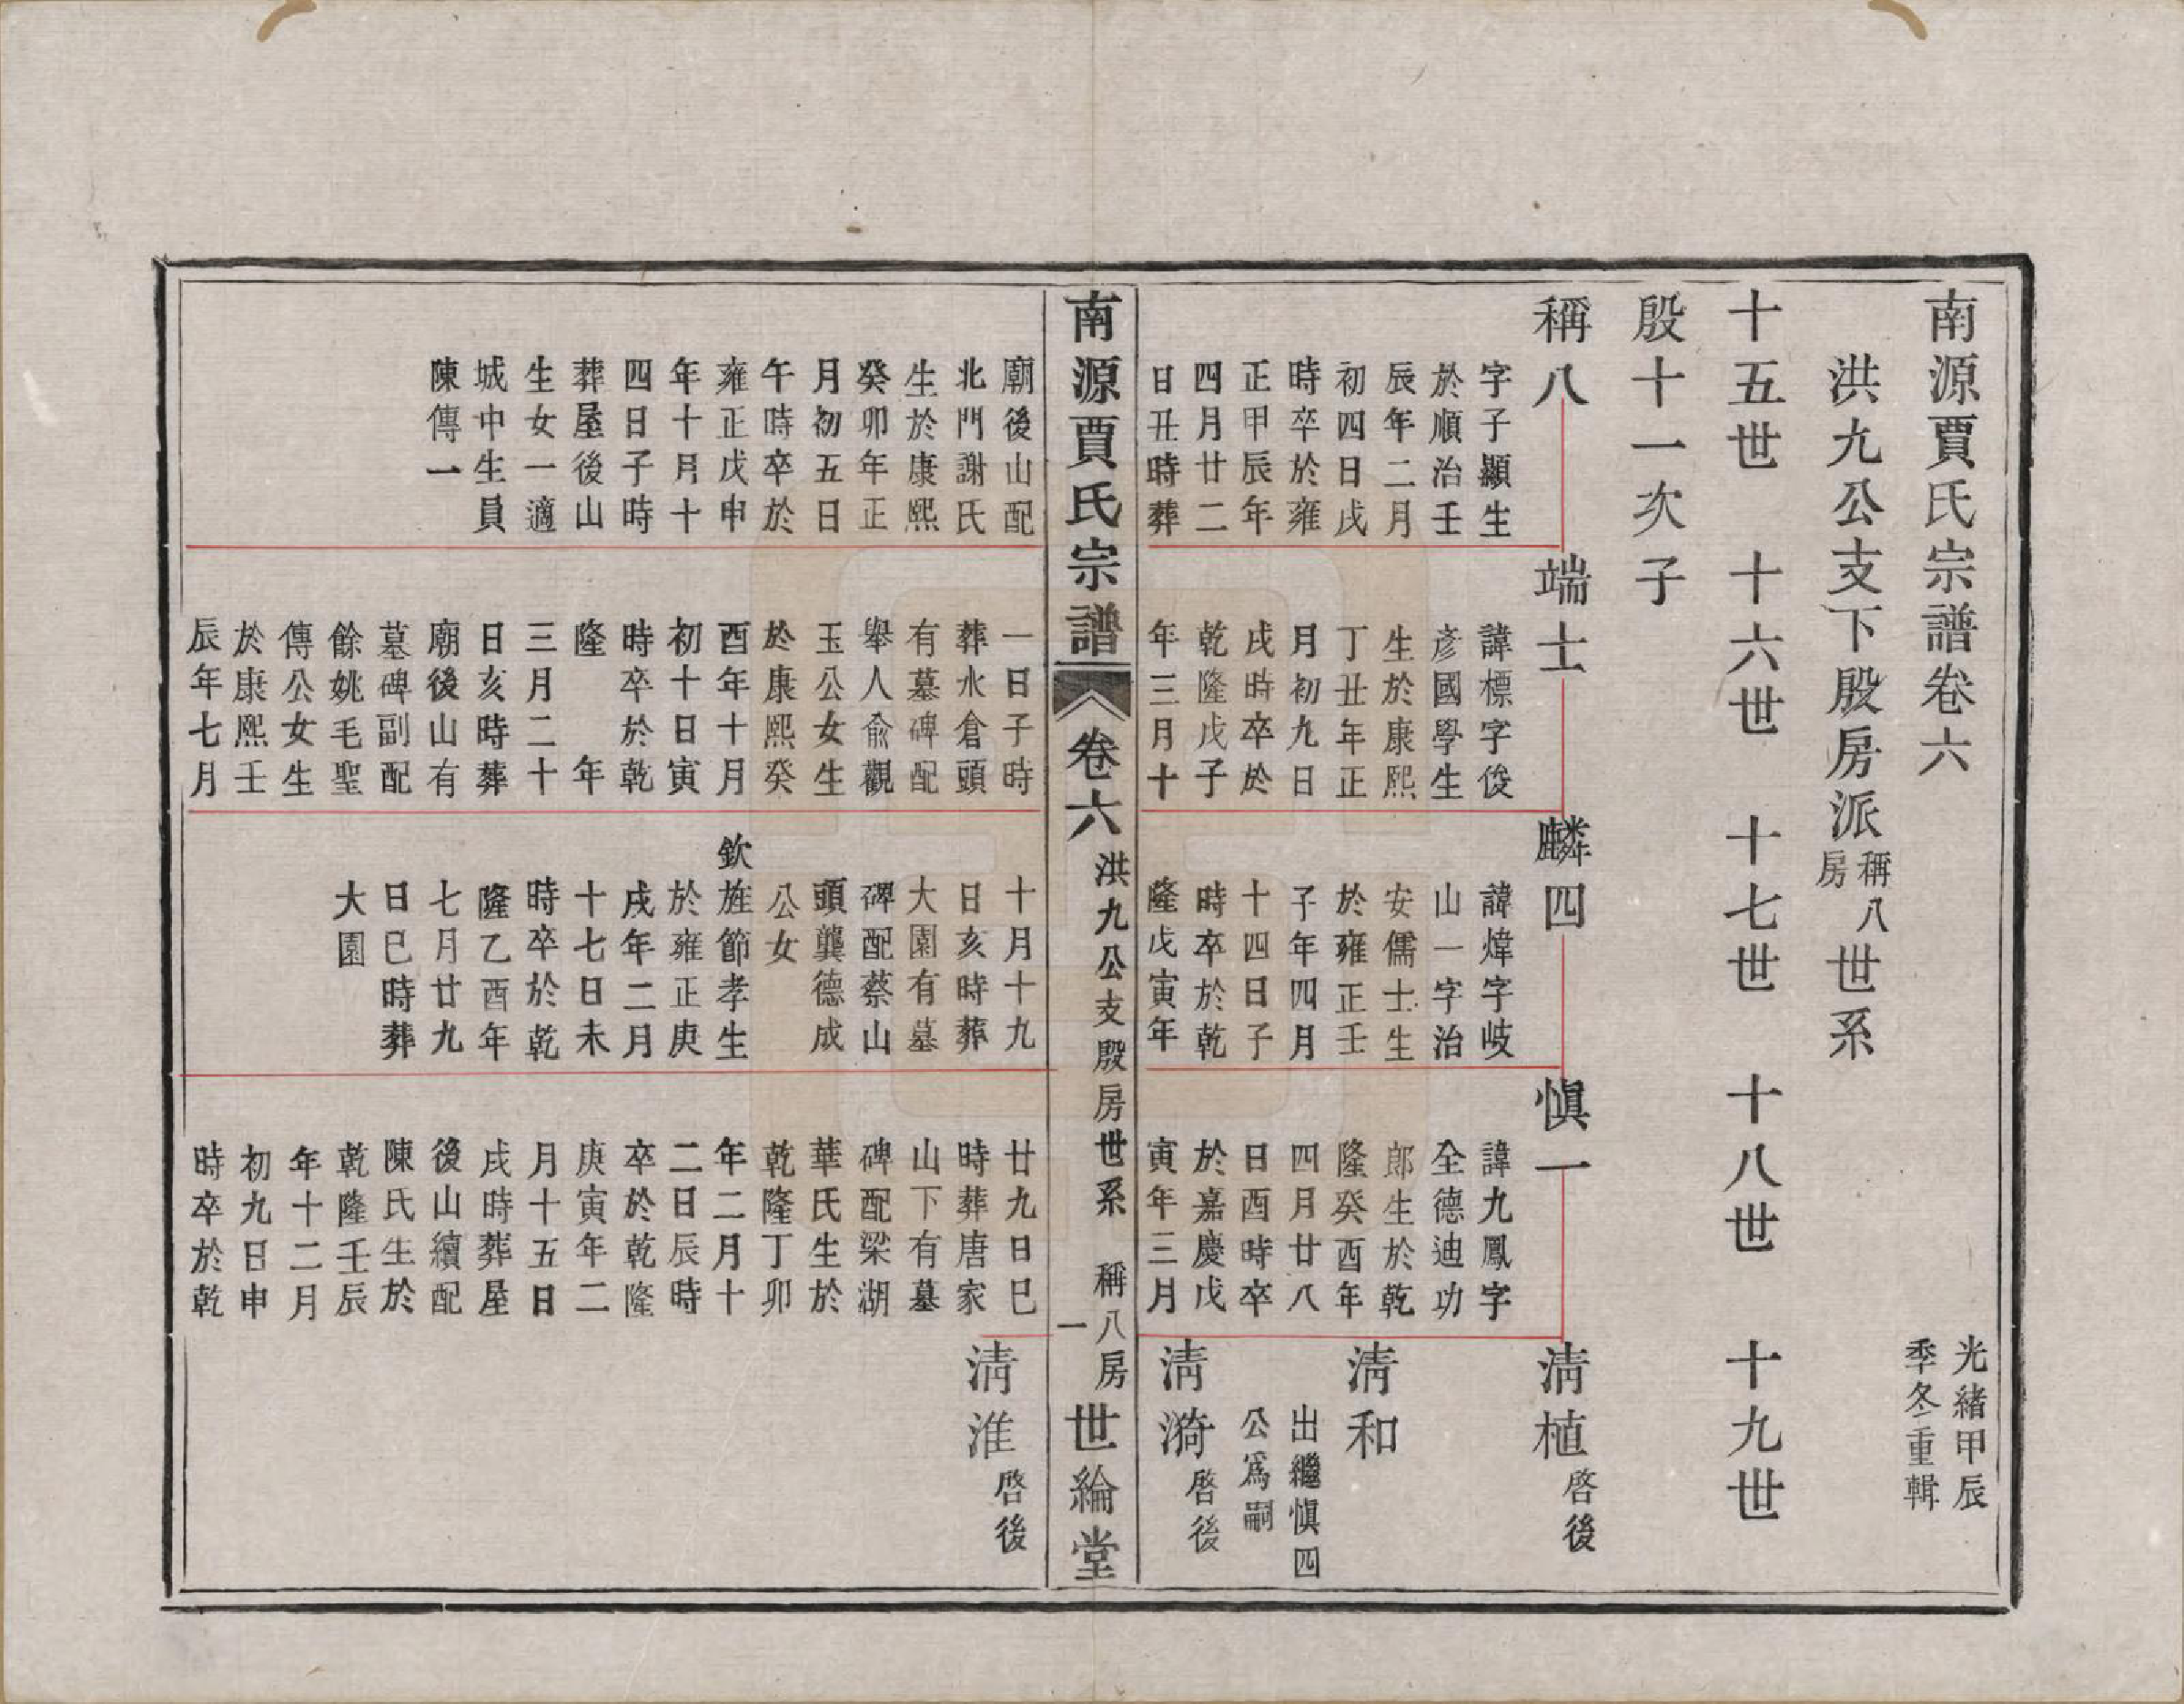 南源賈氏宗譜卷六
光緒甲辰
季冬重輯
洪九公支下殷房派
稱八
房
世系
十五世 十六世 十七世 十八世 十九世
殷十一次子
稱八
字子顯生
於順治壬
辰年二月
初四日戌
時卒於雍
正甲辰年
四月廿二
日丑時葬
廟後山配
北門謝氏
生於康熙
癸卯年正
月初五日
午時卒於
雍正戊申
年十月十
四日子時
葬屋後山
生女一適
城中生員
陳傳一
端士
諱標字俊
彥國學生
生於康熙
丁丑年正
月初九日
戌時卒於
乾隆戊子
年三月十
一日子時
葬水倉頭
有墓碑配
舉人俞觀
玉公女生
於康熙癸
酉年十月
初十日寅
時卒於乾
隆 年
三月二十
日亥時葬
廟後山有
墓碑副配
餘姚毛聖
傳公女生
於康熙壬
辰年七月
麟四
諱煒字岐
山一字治
安儒士生
於雍正壬
子年四月
十四日子
時卒於乾
隆戊寅年
十月十九
日亥時葬
大園有墓
碑配蔡山
頭龔德成
公女
欽旌節孝生
於雍正庚
戌年二月
十七日未
時卒於乾
隆乙酉年
七月廿九
日巳時葬
大園
慎一
諱九鳳字
全德迪功
郎生於乾
隆癸酉年
四月廿八
日酉時卒
於嘉慶戊
寅年三月
廿九日巳
時葬唐家
山下有墓
碑配梁湖
華氏生於
乾隆丁卯
年二月十
二日辰時
卒於乾隆
庚寅年二
月十五日
戌時葬屋
後山續配
陳氏生於
乾隆壬辰
年十二月
初九日申
時卒於乾
清植 啓後
清和
出繼慎四
公爲嗣
清漪 啓後
清淮 啓後
南源賈氏宗譜 卷六 洪九公支殷房世系 稱八房 一 世綸堂